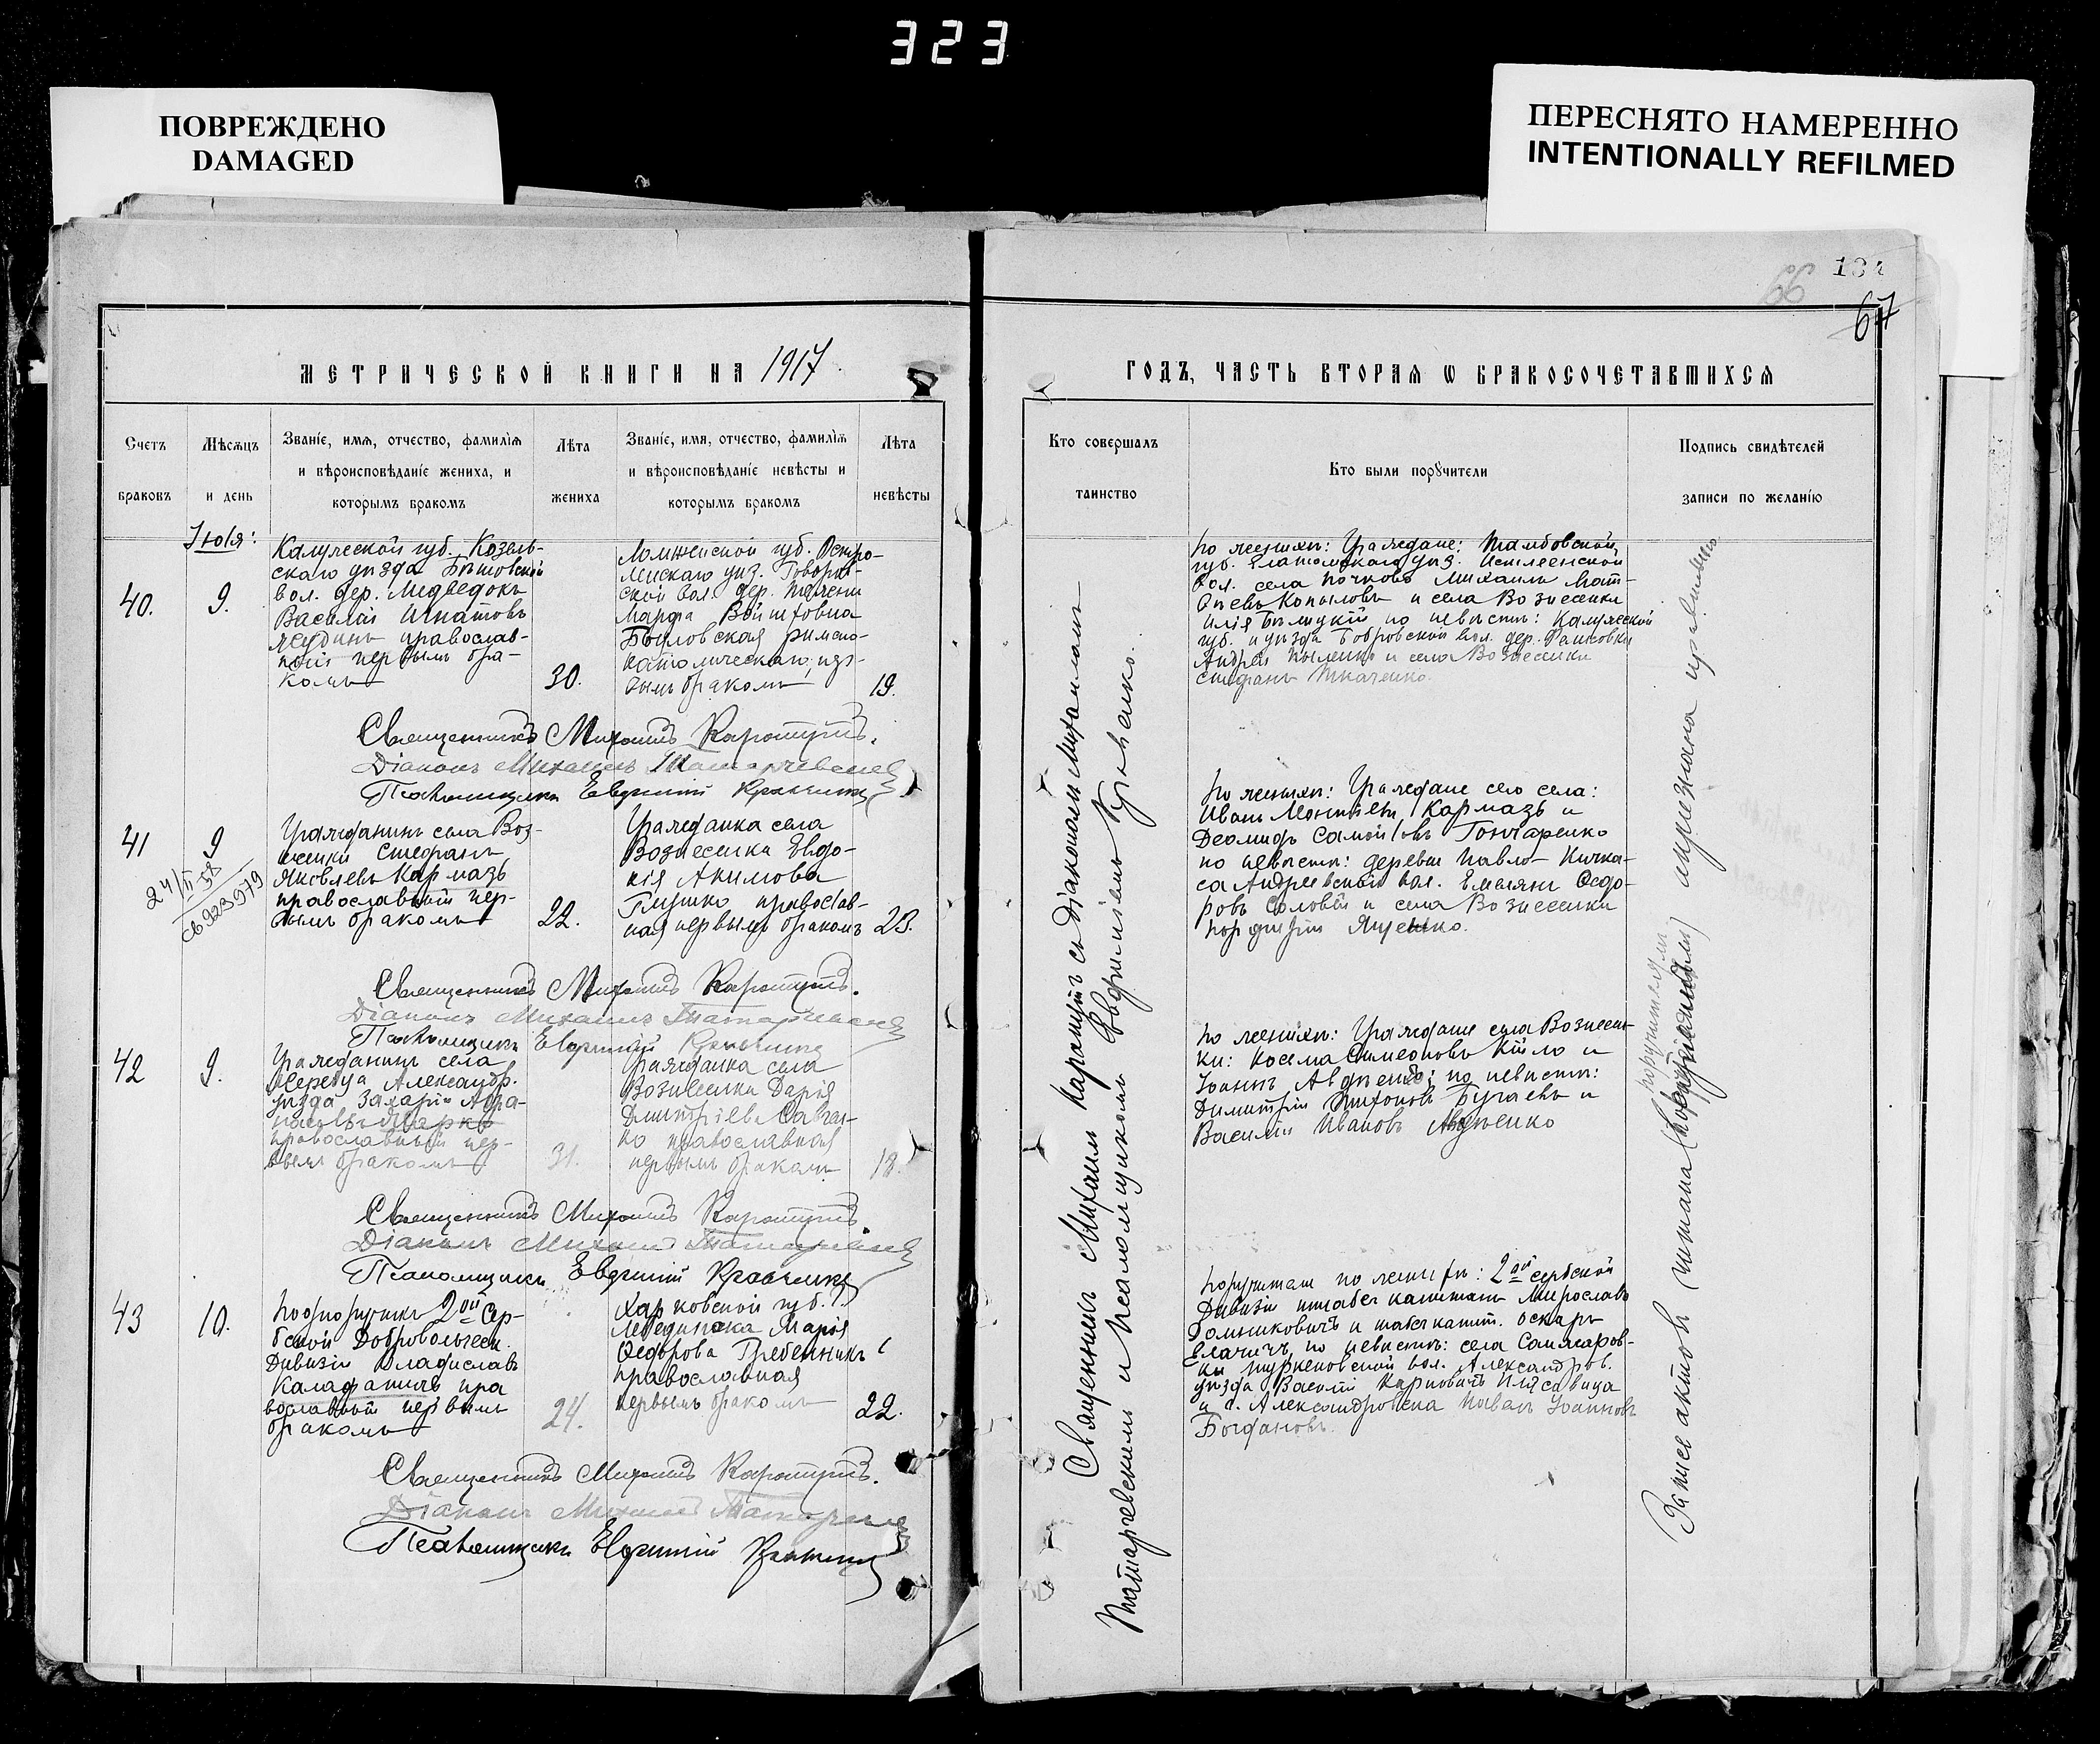 323
ПОВРЕЖДЕНО
DAMAGED
ПЕРЕСНЯТО НАМЕРЕННО
INTENTIONALLY REFILMED
66
67
МЕТРИЧЕСКОЙ КНИГИ НА 1917
Счетъ
браковъ
Мѣсяцъ
и день
Званіе, имя, отчество, фамилія
и вѣроисповѣданіе жениха, и
которымъ бракомъ
Лѣта
жениха
Званіе, имя, отчество, фамилія
и вѣроисповѣданіе невѣсты и
которымъ бракомъ
Лѣта
невѣсты
Іюля:
40.
9.
Калужской губ. Козель-
скаго уѣзда
вол. дер. Медведокъ
Василій Игнатовъ
православ-
ный первымъ бра-
комъ
30.
Ломжинской губ. Остро-
ленскаго уѣз. Говоров-
ской вол. дер.
Марфа Войтовна
римско-
католическаго, пер-
вымъ бракомъ
19.
Священникъ Михаилъ Карапутъ.
Діаконъ Михаилъ Татаревскій
Псаломщикъ Евфимій Кравченко
41
9
24/II 58
св 923979
Гражданинъ села Воз-
несенки Стефанъ
Яковлевъ Кармазь
православный пер-
вымъ бракомъ
22.
Гражданка села
Вознесенка Евдо-
кія Акимова
Глушко православ-
ная первымъ бракомъ
23.
Священникъ Михаилъ Карапутъ.
Діаконъ Михаилъ Татаревскій
Псаломщикъ Евфимій Кравченко
42
9.
Гражданинъ села
Александр.
уѣзда Захарій Афа-
насьевъ Марко
православный пер-
вымъ бракомъ
31.
Гражданка села
Вознесенка Дарія
Дмитріева Савчен-
ко православная
первымъ бракомъ
18.
Священникъ Михаилъ Карапутъ.
Діаконъ Михаилъ Татаревскій
Псаломщикъ Евфимій Кравченко
43
10.
Подпоручикъ 2ой Сер-
бской Добровольческ.
Дивизіи Владиславъ
пра
вославный первымъ
бракомъ
24.
Харьковской губ. г.
Лебединска Марія
Ѳедорова Гребенникъ
православная
первымъ бракомъ
22.
Священникъ Михаилъ Карапутъ.
Діаконъ Михаилъ Татаревскій
Псаломщикъ Евфимій Кравченко
ГОДЪ, ЧАСТЬ ВТОРАЯ Ѡ БРАКОСОЧЕТАВШИХСЯ
Кто совершалъ
таинство
Кто были порꙋчители
Подпись свидѣтелей
записи по желанію
Священникъ Михаилъ Карапутъ съ діакономъ Михаиломъ
Татаревскимъ и псаломщикомъ Евфиміемъ Кравченко.
По женихѣ: Граждане: Тамбовской
губ. Елатомскаго уѣз.
вол. села Почково Михаилъ Мат-
ѳѣевъ Копыловъ и села Вознесенки
Илія Билецкій по невѣстѣ: Калужской
губ. и уѣзда Бобровской вол. дер.
Андрей и села Вознесенки
Стефанъ Ткаченко.
По женихѣ: Граждане сего села:
Иванъ Кармазь и
Деомидъ Самойловъ Гончаренко
по невѣстѣ: деревни Павло-Кичка-
са Андреевской вол. Емелянъ Ѳедо-
ровъ Соловій и села Вознесенки
Порфирій Яценко.
По женихѣ: Граждане села Вознесен-
ки: Косма Симеоновъ Кійло и
Іоаннъ Авдѣенко; по невѣстѣ:
Димитрій Тихоновъ Бугаевъ и
Василій Ивановъ Авдѣенко
Поручители по женихѣ: 2ой сербской
Дивизіи штабсъ капитанъ Мирославъ
и штабскапит. Оскаръ
Елачичъ, по невѣстѣ: села
вол. Александров.
уѣзда Василій Карповичъ
и г. Александровска Павелъ Іоанновъ
Богдановъ.
Запись актовъ читана поручителямъ и признана правильною